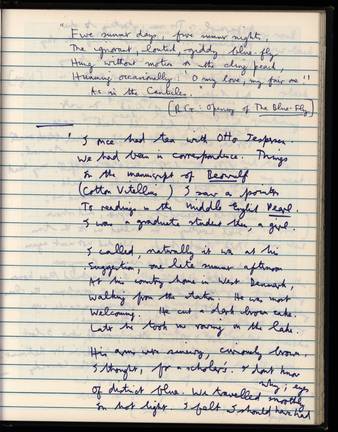 "Five summer days, five summer nights,
The ignorant, loutish, giddy blue-fly
Hung without motion on the cling peach,
Humming occasionally: 'O my love, my fair one'!
As in the Canticles."
(R.G.: Opening of The Blue-Fly)
I once had tea with Otto Jespersen.
We had been in correspondence. Things
In the manuscript of Beowulf
(Cotton Vitellius ) I saw a pointer
To readings in the Middle English Pearl.
I was a graduate student then, a girl.
I called, naturally it was at his
Suggestion, one late summer afternoon
At his country home in West Denmark,
Walking from the station. He was most
Welcoming. He cut a dark brown cake.
Later he took us rowing on the lake.
His arms were sinewy, curiously brown,
I thought, for a scholar's. I don't know
why; eyes
Of distinct blue. We travelled smoothly
In hot light. I felt I should have had